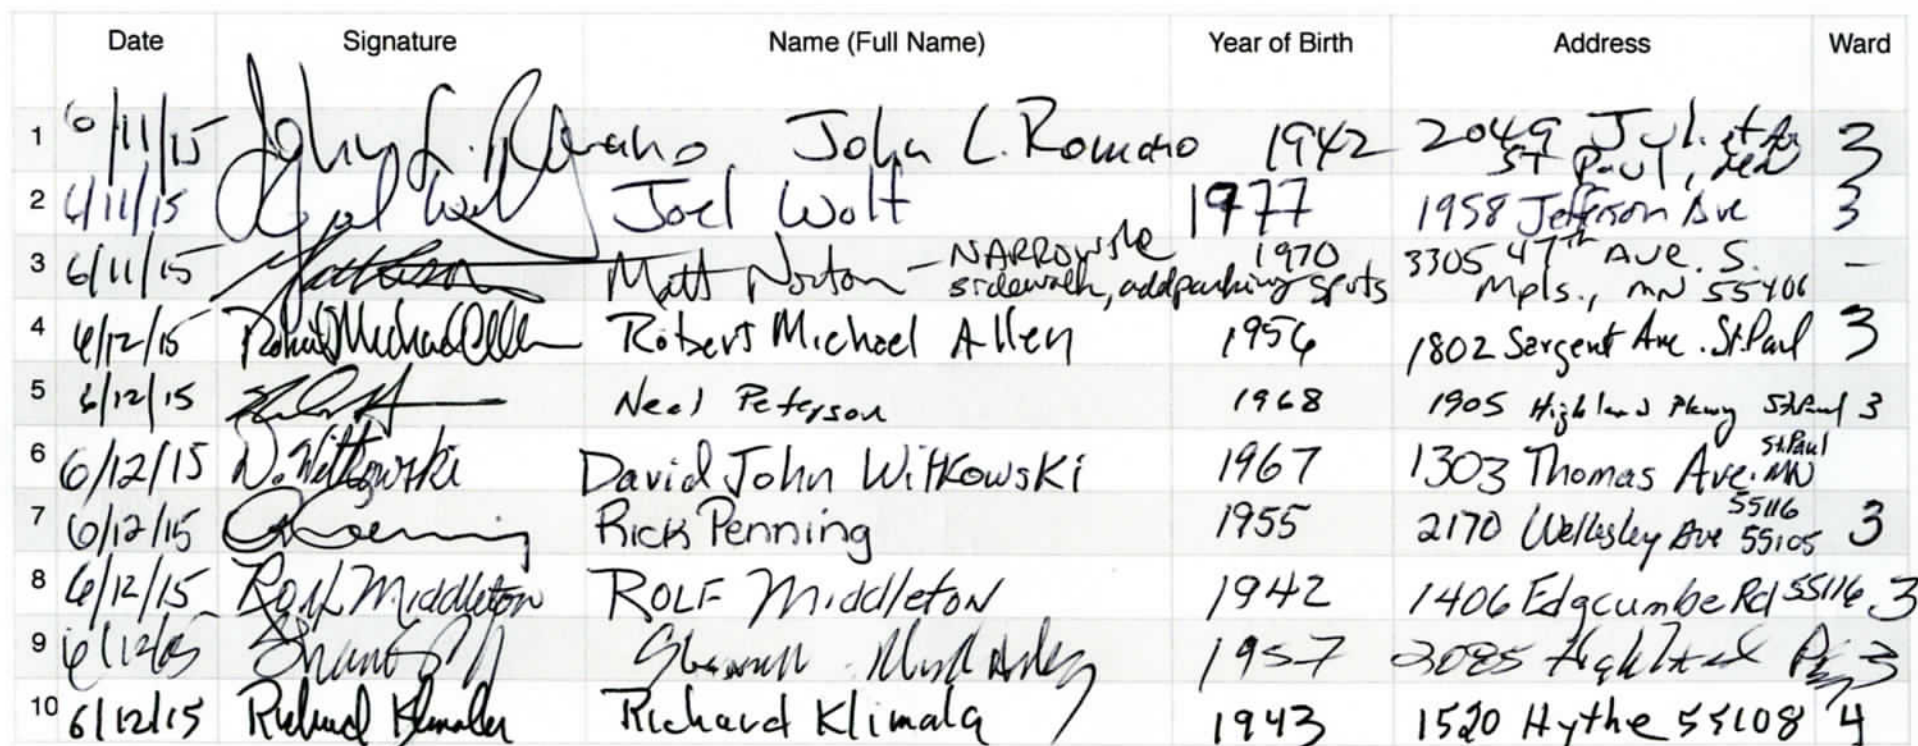 Date Signature Name (Full Name) Year of Birth Address Ward
1 6/11/15 John L. Romano John L. Romano 1942 2049 Juliet Av 3
St Paul,
2 6/11/15 Joel Wolf Joel Wolf 1977 1958 Jefferson Ave 3
3 6/11/15 Matt Norton – NARROW the 1970 3305 47th Ave. S. –
sidewalk, add parking spots Mpls., MN 55406
4 6/12/15 Robert Michael Allen Robert Michael Allen 1956 1802 Sargent Ave. St. Paul 3
5 6/12/15 Neal Peterson 1968 1905 Highland Pkwy St Paul 3
6 6/12/15 D. Witkowski David John Witkowski 1967 1303 Thomas Ave. St. Paul MN
55116
7 6/12/15 Rick Penning 1955 2170 Wellesley Ave 55105 3
8 6/12/15 Rolf Middleton ROLF Middleton 1942 1406 Edgcumbe Rd 55116 3
9 1957 2085 Highland 3
10 6/12/15 Richard Klimala Richard Klimala 1943 1520 Hythe 55108 4